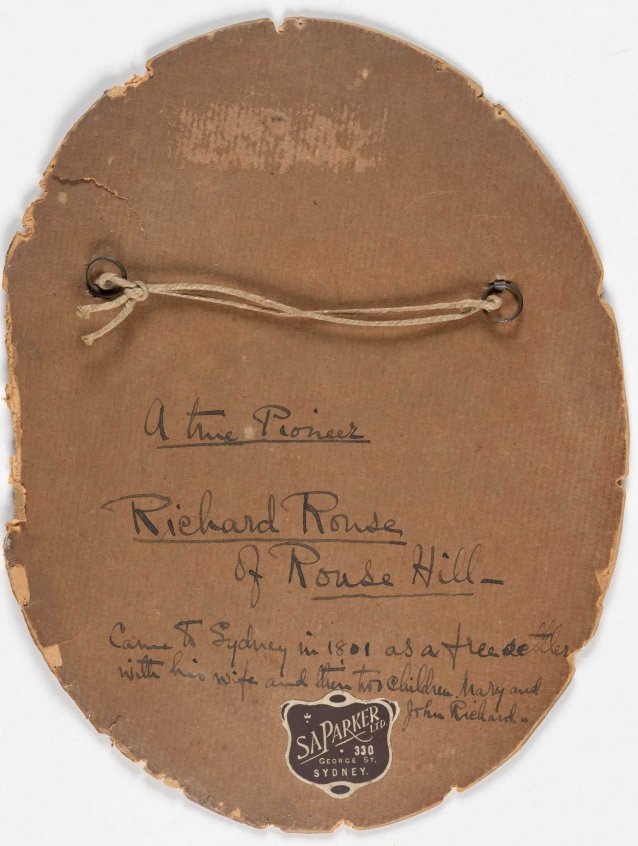 A true Pioneer
Richard Rouse
of Rouse Hill -
Came to Sydney in 1801 as a free settler
with his wife and their two children, Mary and
John Richard -
S.A. PARKER LTD.
330
GEORGE ST.
SYDNEY.